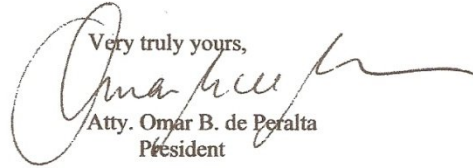 Very truly yours,
Atty. Omar B. de Peralta
President